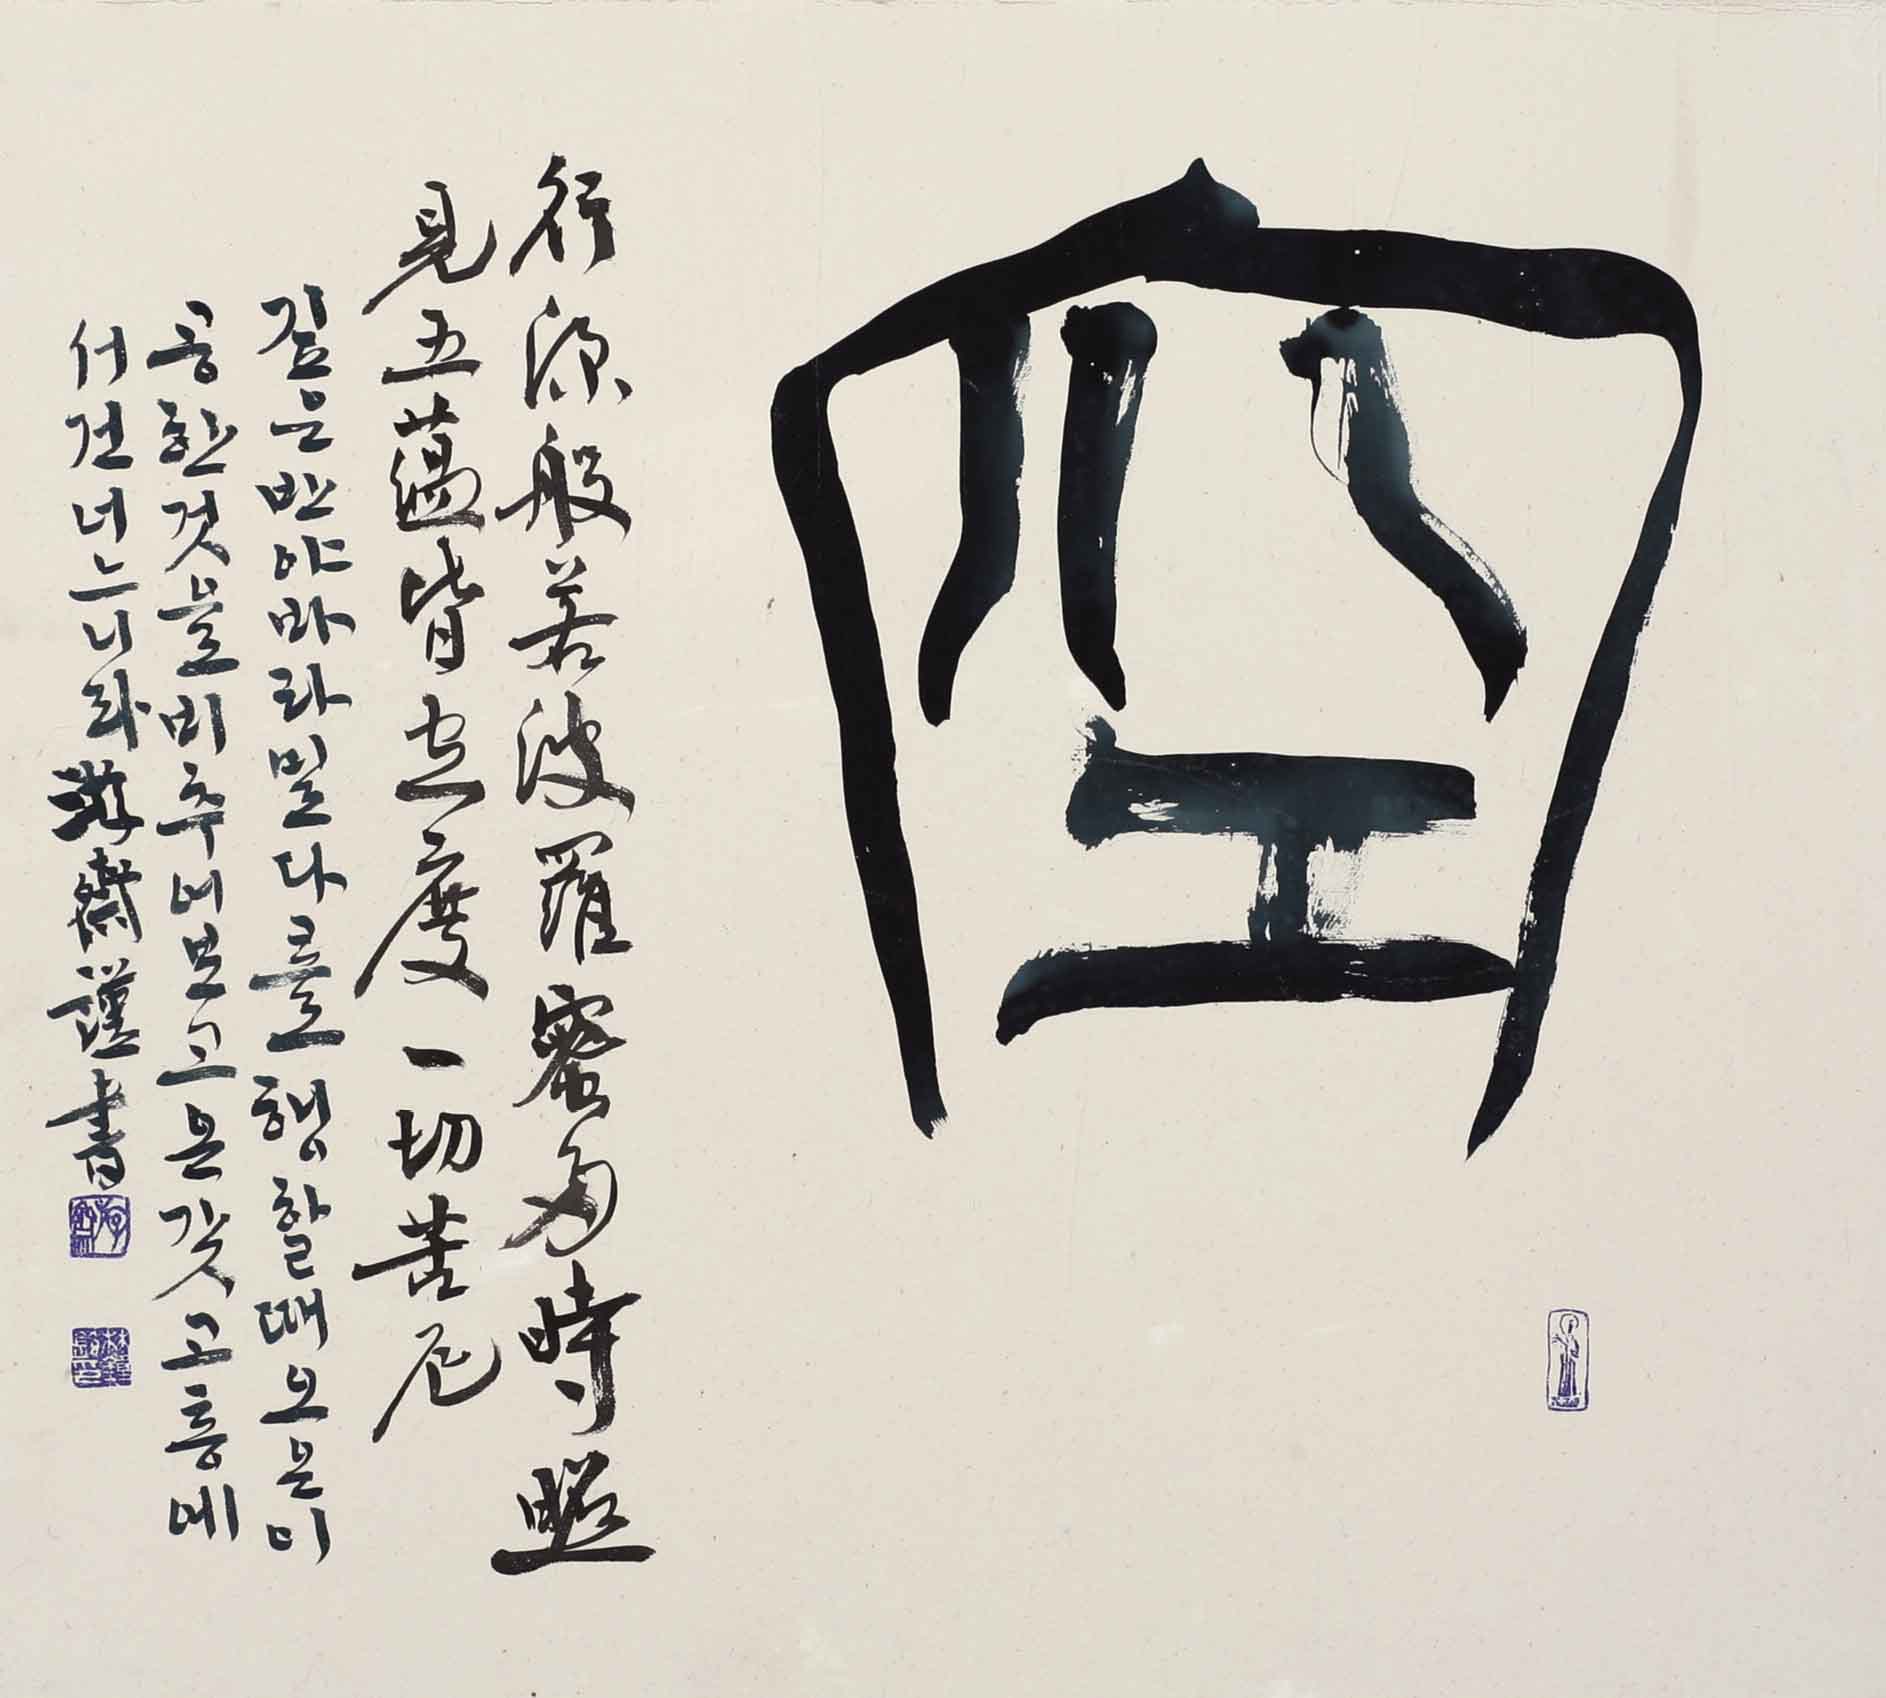 空
行深般若波羅蜜多時照
見五蘊皆空度一切苦厄
깊은반야바라밀다를행할때오온이
공한것을비추어보고온갖고통에
서건너느니라 游齋謹書